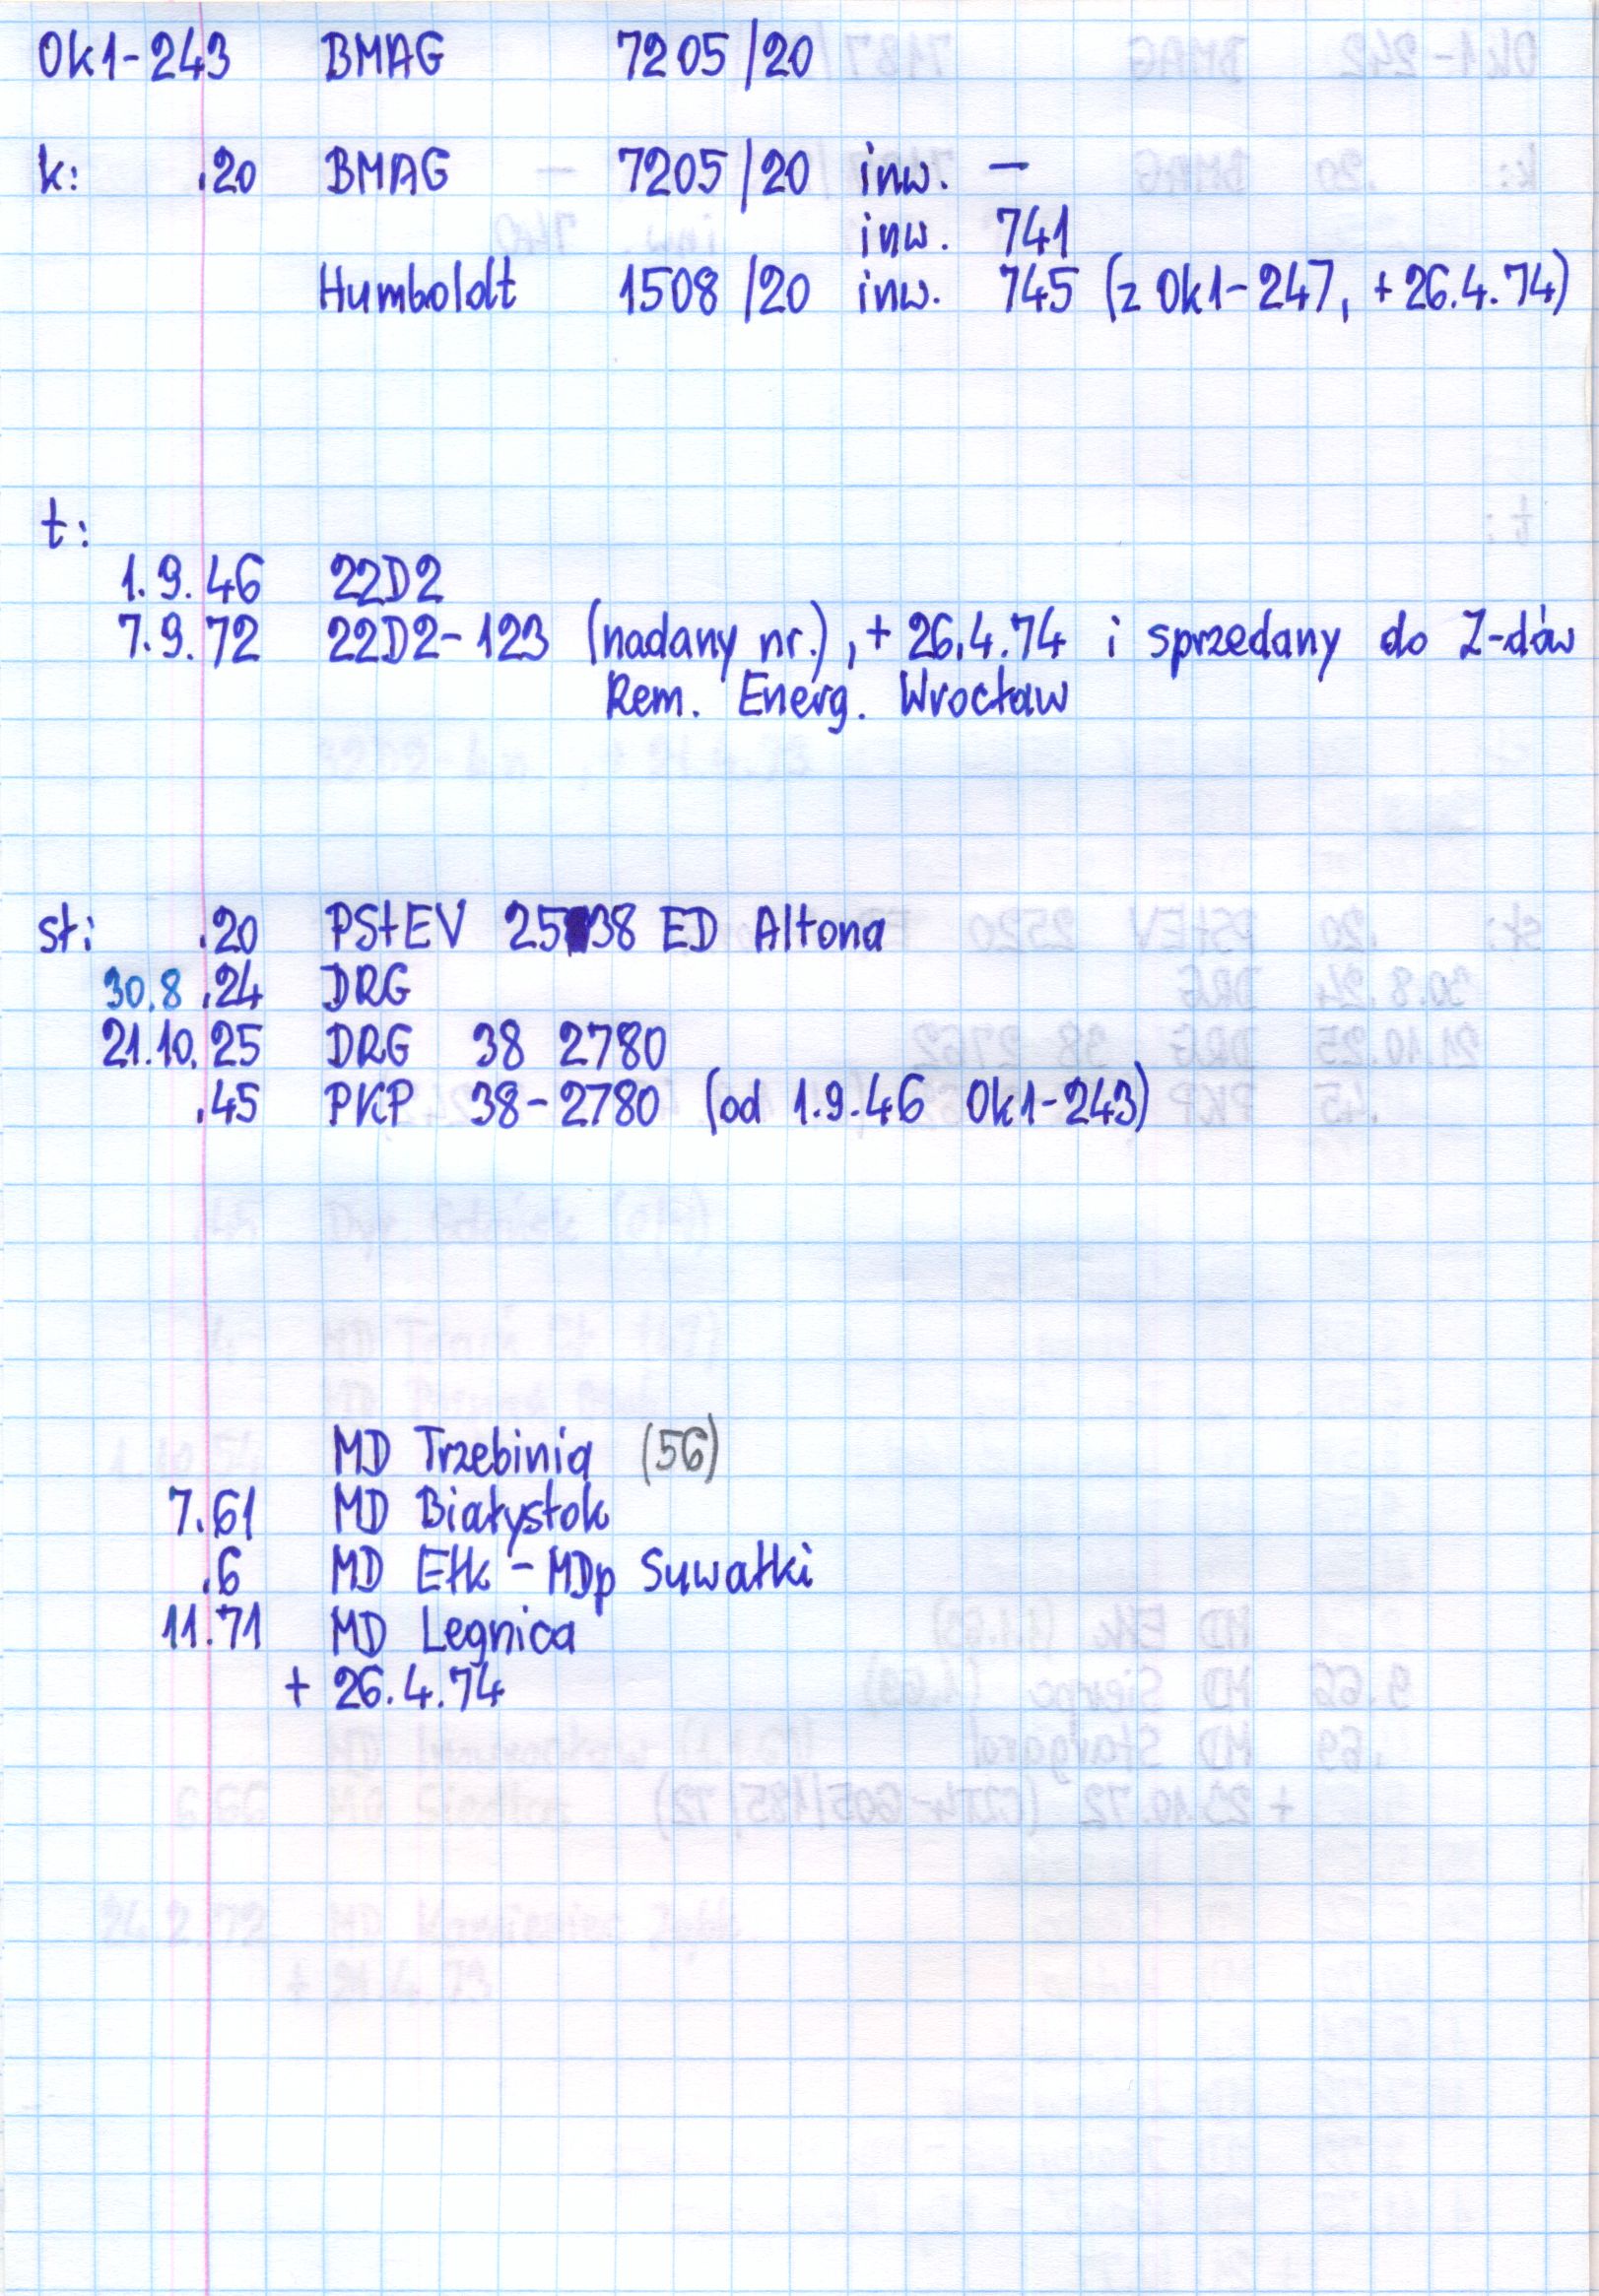 Ok1-243 BMAG 7205/20
k: .20 BMAG 7205/20 inw. —
inw. 741
Humboldt 1508/20 inw. 745 (z Ok1-247, + 26.4.74)
t:
1.9.46 22D2
7.9.72 22D2-123 (nadany nr.), + 26.4.74 i sprzedany do Z-dów
Rem. Energ. Wrocław
st: .20 PStEV 2538 ED Altona
30.8.24 DRG
21.10.25 DRG 38 2780
.45 PKP 38-2780 (od 1.9.46 Ok1-243)
MD Trzebinia (56)
7.61 MD Białystok
.6 MD Ełk - MDp Suwałki
11.71 MD Legnica
+ 26.4.74